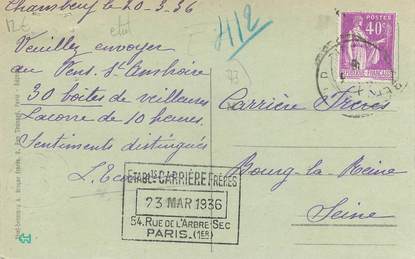 le 20-3-36
12€
Veuillez envoyer
au Pens. St
30 boites de veilleuses
de 10 heures.
Sentiments distingués
412
73
POSTES
40c
Carrière Frères
Bourg-la-Reine
Seine
ETABLts CARRIÈRE FRÈRES
23 MAR 1936
54, RUE DE L'ARBRE SEC
PARIS. (1ER)